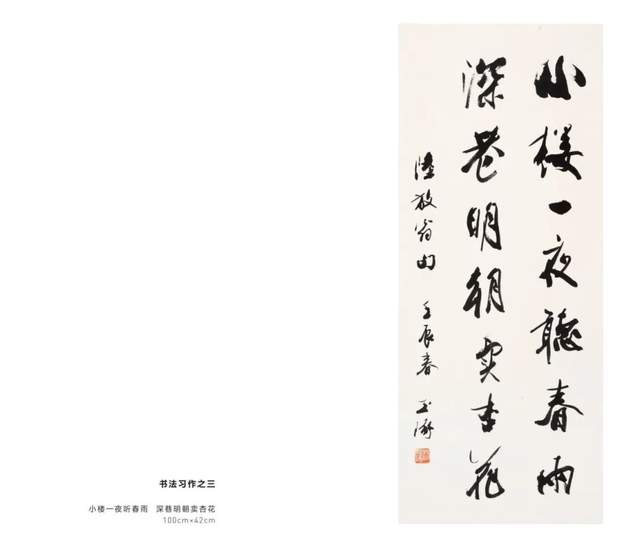 小楼一夜聽春雨
深巷明朝卖杏花
陸放翁句 壬辰春 玉
书法习作之三
小楼一夜听春雨 深巷明朝卖杏花
100cm×42cm